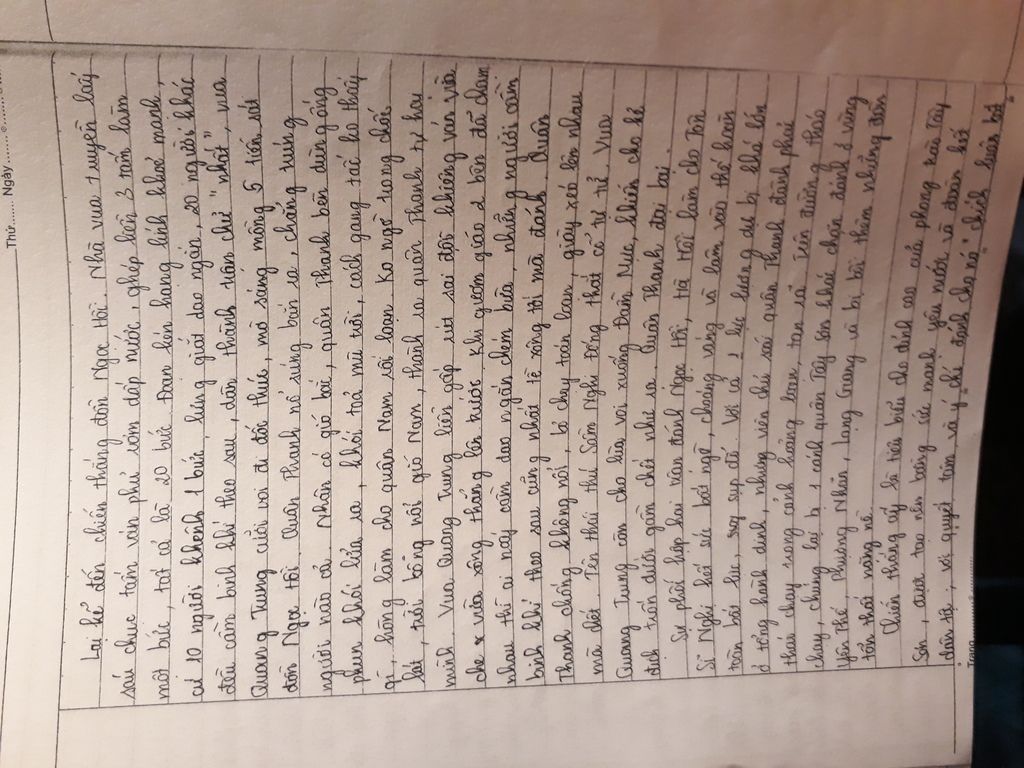 Thứ....... Ngày..........
Lại kể đến chiến thắng đồn Ngọc Hồi. Nhà vua truyền lấy
sáu chục tấm ván phủ rơm dấp nước, ghép liền 3 tấm làm
một bức, tất cả là 20 bức. Đoạn lính khoẻ mạnh,
cứ 10 người khênh 1 bức, lưng giắt dao ngắn, 20 người khác
đều cầm binh khí theo sau, dàn thành trận chữ "nhất", vua
Quang Trung cưỡi voi đi đốc thúc, mờ sáng mồng 5 tiến sát
đồn Ngọc Hồi. Quân Thanh nổ súng bắn ra, chẳng trúng
người nào cả. Nhân có gió bắc, quân Thanh bèn dùng ống
phun khói lửa ra, khói toả mù trời, cách gang tấc ko thấy
gì, hòng làm cho quân Nam rối loạn. Ko ngờ trong chốc
lát, trời bỗng nổi gió Nam, thành ra quân Thanh tự hại
mình. Vua Quang Trung liền gấp rút sai đội khiêng ván vừa
che vừa xông thẳng lên trước. Khi gươm giáo 2 bên đã chạm
nhau thì ai nấy cầm dao ngắn chém bừa, những người cầm
binh khí theo sau cũng nhất tề xông tới mà đánh. Quân
Thanh chống không nổi, bỏ chạy toán loạn, giày xéo lên nhau
mà chết. Tên thái thú Sầm Nghi Đống thắt cổ tự tử. Vua
Quang Trung còn cho lùa voi xuống Đầm Mực, khiến cho kẻ
địch trốn dưới đầm chết như rạ. Quân Thanh đại bại.
Sự phối hợp hai trận đánh Ngọc Hồi, Hà Hồi làm cho Tôn
Sĩ Nghị hết sức bất ngờ, choáng váng và lâm vào thế hoàn
toàn bất lực, suy sụp đổ. Với cả 1 lực lượng dự bị khá lớn
ở tổng hành dinh, nhưng viên chủ soái quân Thanh đành phải
tháo chạy trong cảnh hoảng loạn, tan rã. Trên đường tháo
chạy, chúng lại bị 1 cánh quân Tây Sơn khác chặn đánh ở vùng
Yên Thế, Phượng Nhãn, Lạng Giang và lại bị thêm những đòn
tổn thất nặng nề.
Chiến thắng ấy là tiêu biểu cho đỉnh cao của phong trào Tây
Sơn, được tạo nên bằng sức mạnh yêu nước và đoàn kết
dân tộc, với quyết tâm và ý chí "đánh cho nó" chích luân bất
Trang